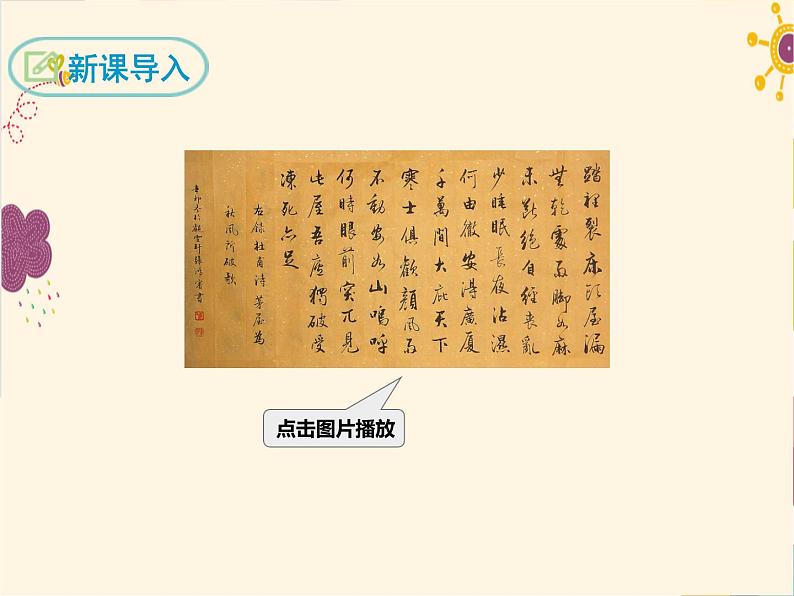 新课导入
踏裡裂床頭屋漏
無乾處雨腳如麻
未斷絕自經喪亂
少睡眠長夜沾濕
何由徹安得廣厦
千萬間大庇天下
寒士俱歡顏風雨
不動安如山嗚呼
何時眼前突兀見
此屋吾廬獨破受
凍死亦足
右錄杜甫詩茅屋為
秋風所破歌
辛卯於雲軒張書
点击图片播放